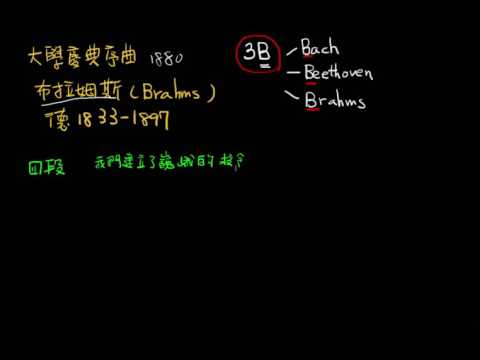 大學慶典序曲 1880
布拉姆斯(Brahms)
德 1833-1897
3B
Bach
Beethoven
Brahms
四段 我們建立了 的